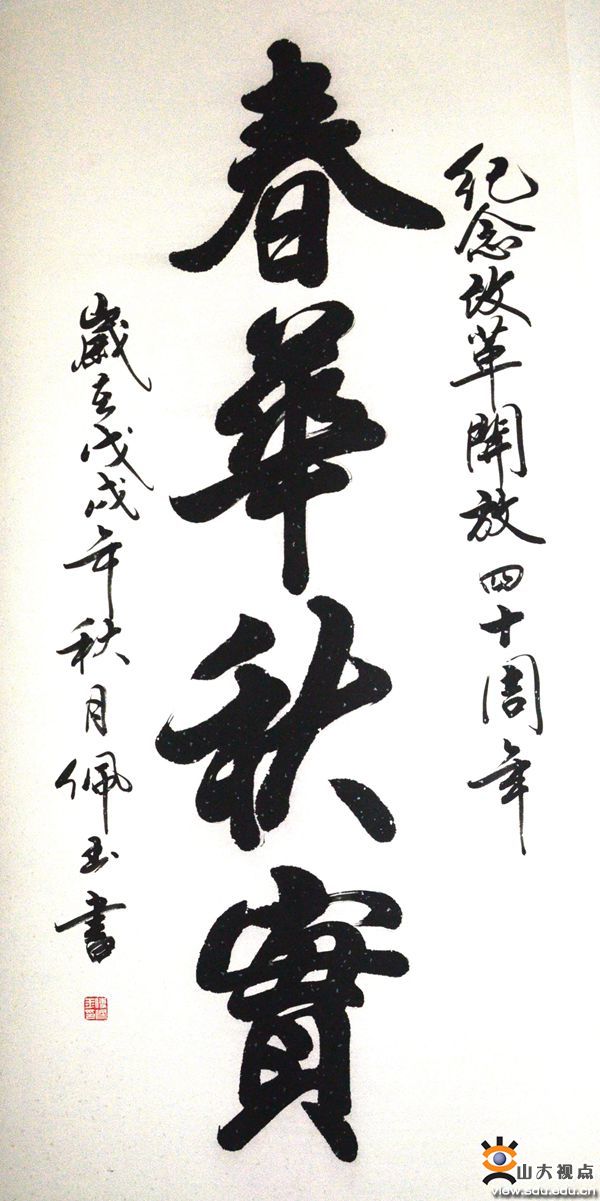 纪念改革開放四十周年
春華秋實
歲在戊戌年秋月佩玉書
山大视点
view.sdu.edu.cn